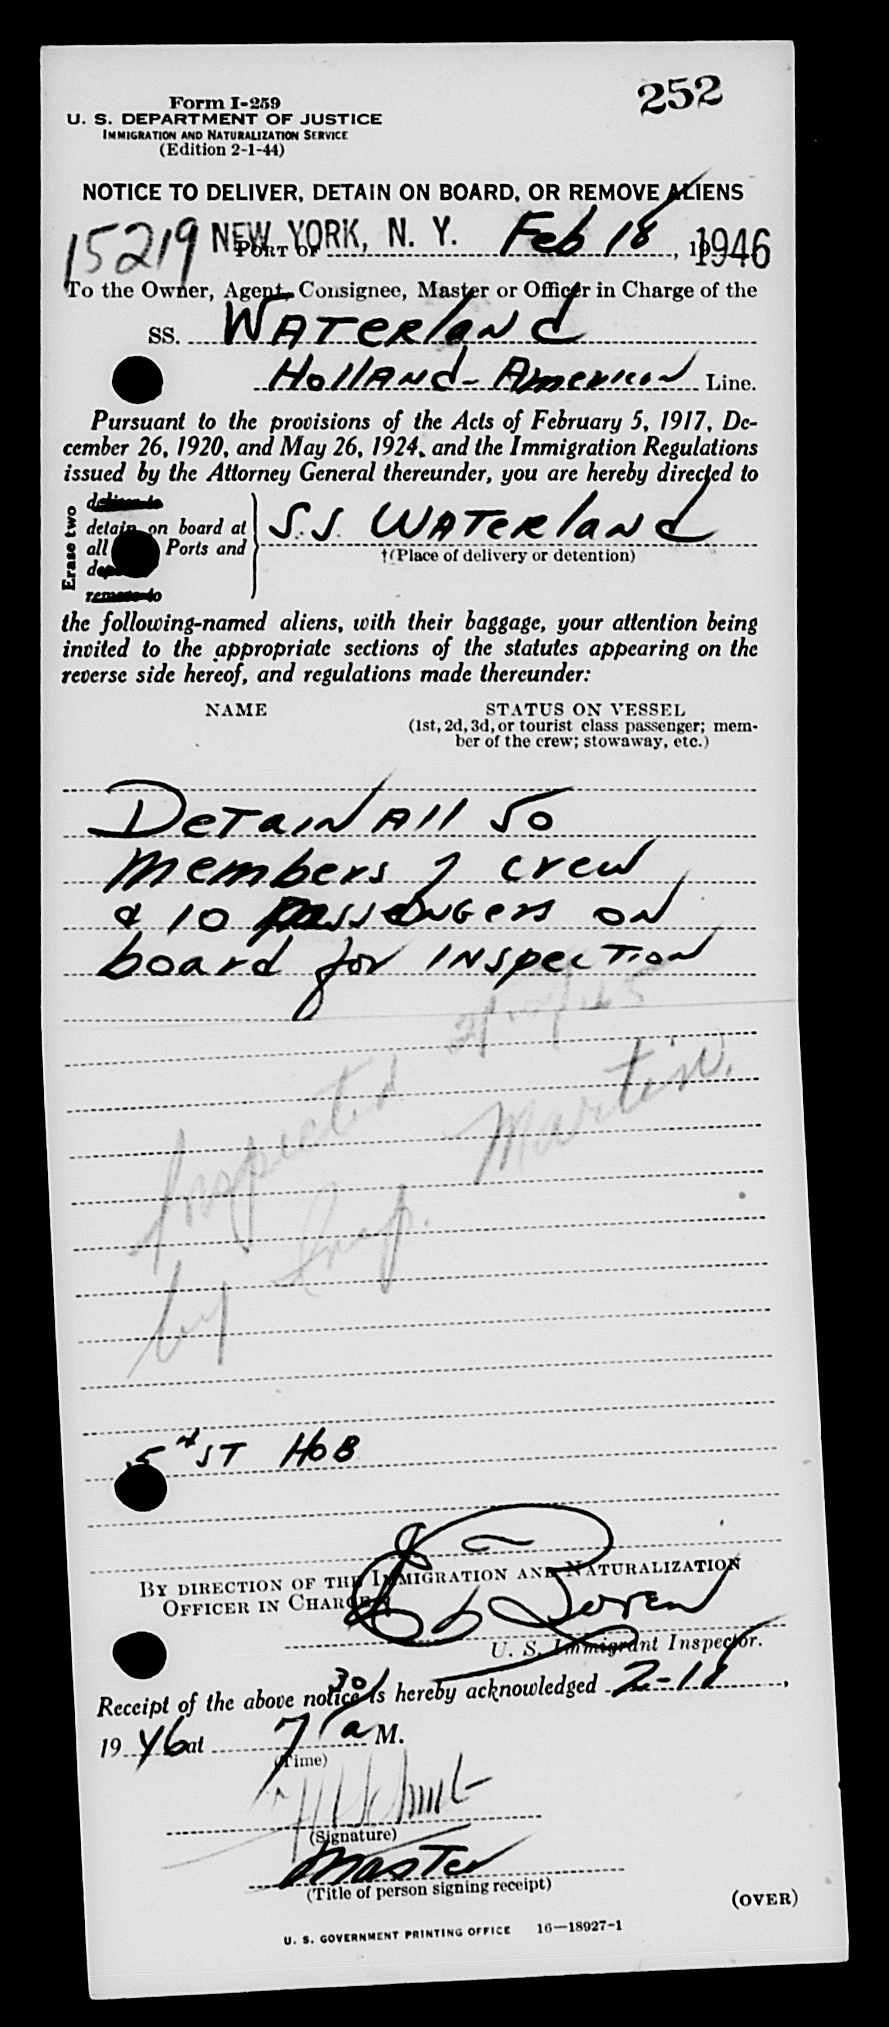 252
Form I-259
U. S. DEPARTMENT OF JUSTICE
IMMIGRATION AND NATURALIZATION SERVICE
(Edition 2-1-44)
NOTICE TO DELIVER, DETAIN ON BOARD, OR REMOVE ALIENS
15219 NEW YORK, N. Y. Feb 18, 1946
PORT OF
To the Owner, Agent, Consignee, Master or Officer in Charge of the
SS. WATERland
HOLLAND-American Line.
Pursuant to the provisions of the Acts of February 5, 1917, De-
cember 26, 1920, and May 26, 1924, and the Immigration Regulations
issued by the Attorney General thereunder, you are hereby directed to
Erase two
deliver to
detain on board at
all Ports and
remove to
S.S. WATERland
†(Place of delivery or detention)
the following-named aliens, with their baggage, your attention being
invited to the appropriate sections of the statutes appearing on the
reverse side hereof, and regulations made thereunder:
NAME STATUS ON VESSEL
(1st, 2d, 3d, or tourist class passenger; mem-
ber of the crew; stowaway, etc.)
DETAIN All 50
members of crew
& 10 PASSENGERS ON
board for INSPECTION
Inspected
by Insp. Martin.
5th ST HOB
BY DIRECTION OF THE IMMIGRATION AND NATURALIZATION
OFFICER IN CHARGE
U. S. Immigrant Inspector.
Receipt of the above notice is hereby acknowledged 2-18,
19 46 at 7 30 a M.
(Time)
(Signature)
Master
(Title of person signing receipt)
(OVER)
U. S. GOVERNMENT PRINTING OFFICE 16—18927-1